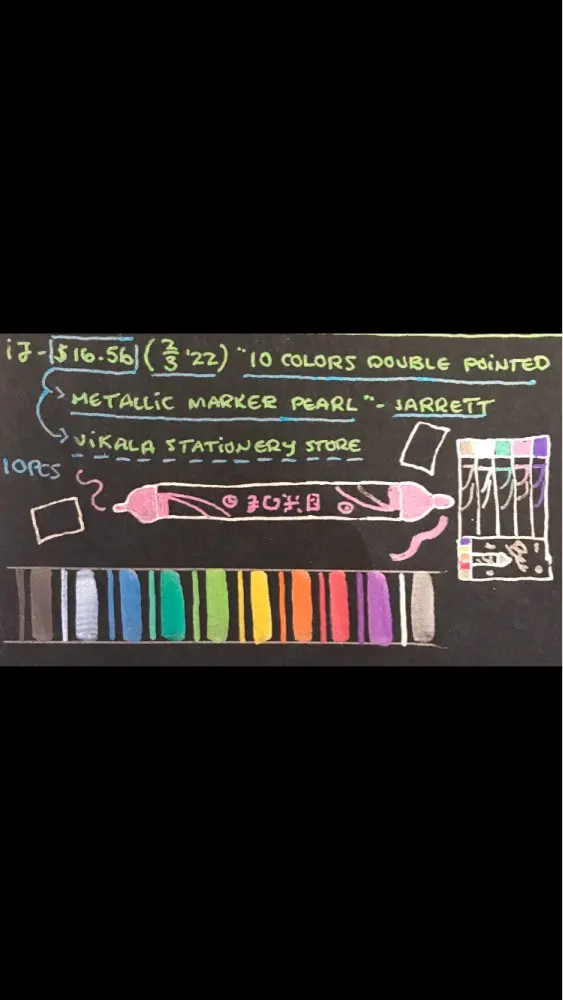 iJ - $16.56 (2/3 '22) "10 COLORS DOUBLE POINTED
METALLIC MARKER PEARL" - JARRETT
ViKALA STATIONERY STORE
10PCS